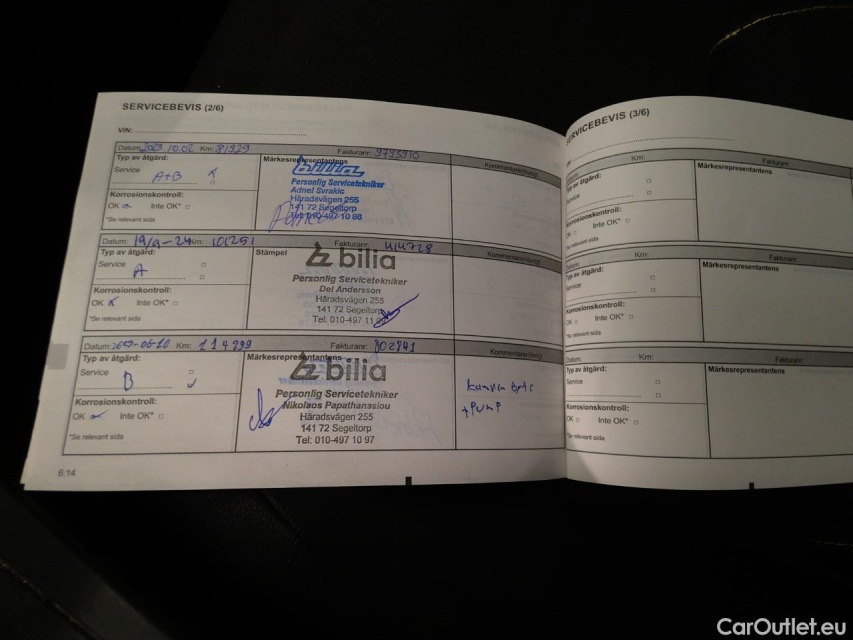 SERVICEBEVIS (2/6)
VIN:
Datum: 2023 10.02 Km: 81929 Fakturanr:
Typ av åtgärd: Märkesrepresentantens Kommentar/övrigt
Service A+B
Korrosionskontroll:
OK Inte OK*
*Se relevant sida
bilia
Personlig Servicetekniker
Adnel Svrakic
Häradsvägen 255
141 72 Segeltorp
Tel: 010-497 10 86
Datum: 19/9-24 Km: 101251 Fakturanr: 414728
Typ av åtgärd: Stämpel Kommentar/övrigt
Service A
Korrosionskontroll:
OK Inte OK*
*Se relevant sida
bilia
Personlig Servicetekniker
Del Andersson
Häradsvägen 255
141 72 Segeltorp
Tel: 010-497 11
Datum: Km: 114799 Fakturanr: 802841
Typ av åtgärd: Märkesrepresentantens Kommentar/övrigt
Service B
Korrosionskontroll:
OK Inte OK*
*Se relevant sida
bilia
Personlig Servicetekniker
Nikolaos Papathanasiou
Häradsvägen 255
141 72 Segeltorp
Tel: 010-497 10 97
+ PUMP
6.14
SERVICEBEVIS (3/6)
Km: Fakturanr:
Typ av åtgärd: Märkesrepresentantens
Service
Korrosionskontroll:
OK Inte OK*
*Se relevant sida
Datum: Km: Fakturanr:
Typ av åtgärd: Märkesrepresentantens
Service
Korrosionskontroll:
OK Inte OK*
*Se relevant sida
Datum: Km: Fakturanr:
Typ av åtgärd: Märkesrepresentantens
Service
Korrosionskontroll:
OK Inte OK*
*Se relevant sida
CarOutlet.eu